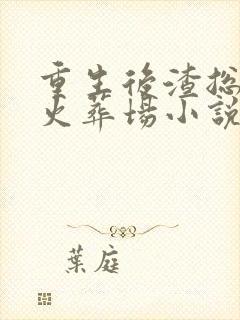 重生後渣総
火葬場小說
葉庭